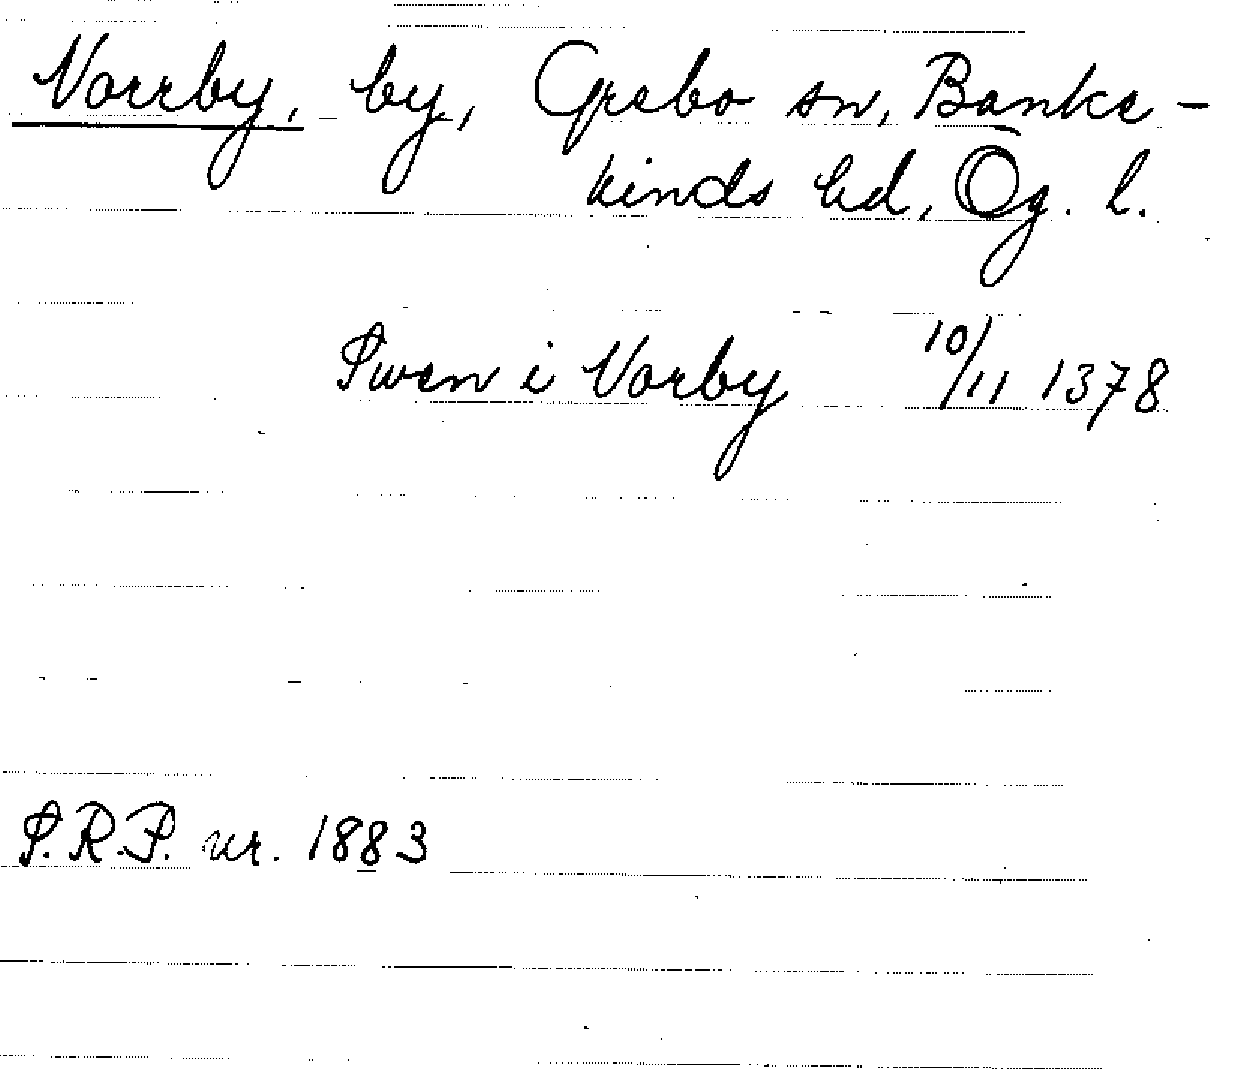 Norrby, by, Grebo sn, Banke-
kinds hd, Ög. l.
Swen i Norby 10/11 1378
S.R.P. nr. 1883